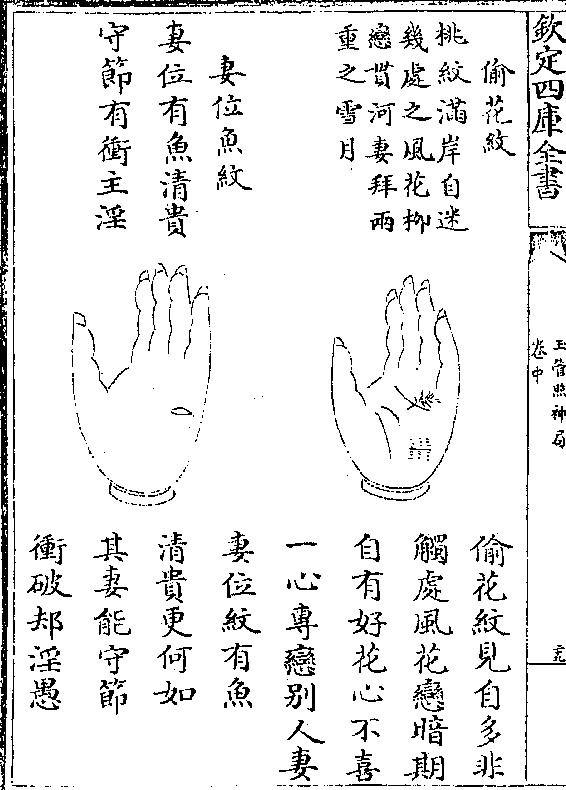 欽定四庫全書
玉管照神局
卷中
偷花紋
桃紋滿岸自迷
幾處之風花抑
戀貫河妻拜兩
重之雪月
妻位魚紋
妻位有魚清貴
守節有衝主淫
偷花紋見自多非
觸處風花戀暗期
自有好花心不喜
一心專戀别人妻
妻位紋有魚
清貴更何如
其妻能守節
衝破却淫愚